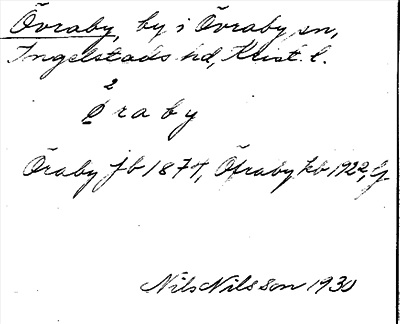 Övraby, by i Övraby sn,
Ingelstads hd, Krist. l.
2
Öraby
Öraby jb 1877, Öfraby kb 1922,
Nils Nilsson 1930